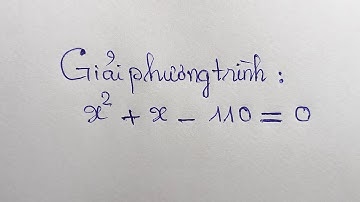 Giải phương trình :
x² + x - 110 = 0